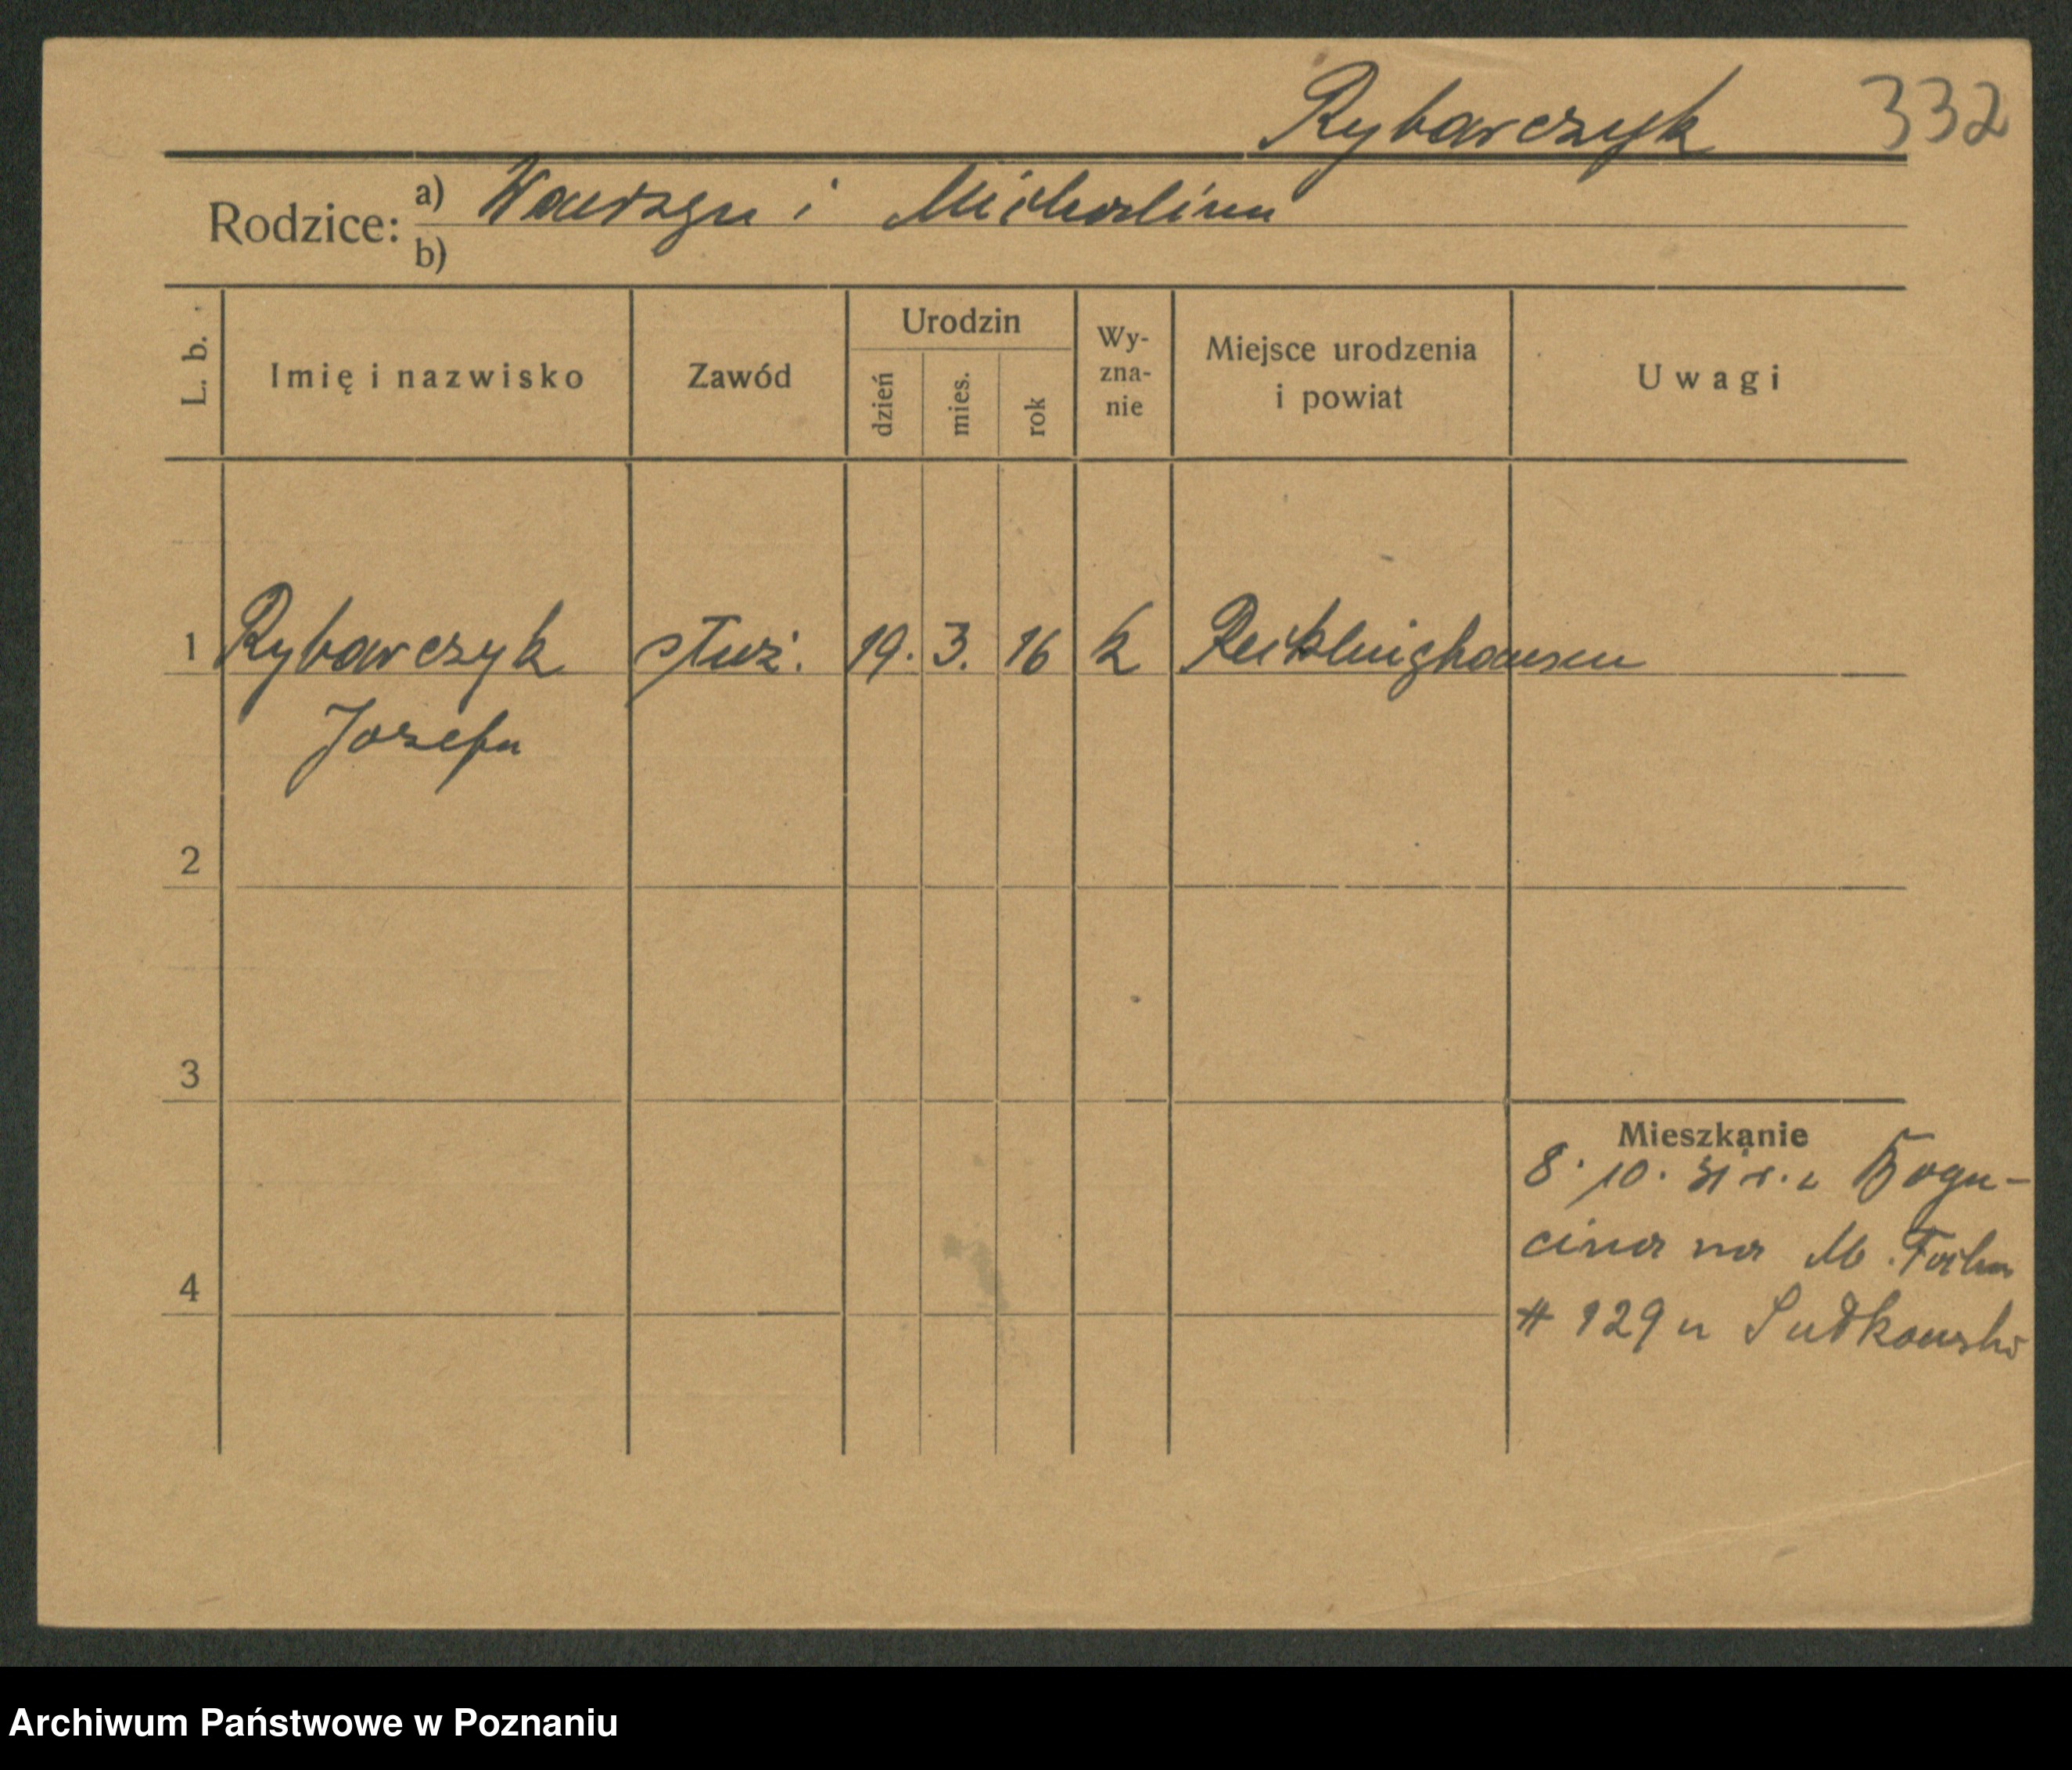 Rybarczyk 332
Rodzice: a) Wawrzyn i Michalina
b)
L. b. Imię i nazwisko Zawód Urodzin dzień mies. rok Wy-zna-nie Miejsce urodzenia i powiat Uwagi
1 Rybarczyk służ. 19. 3. 16 k Recklinghausen
Jozefa
2
3
Mieszkanie
8. 10. 31 r. z Bogu-
cina na M. Focha
4
# 129 u Sudkowski
Archiwum Państwowe w Poznaniu